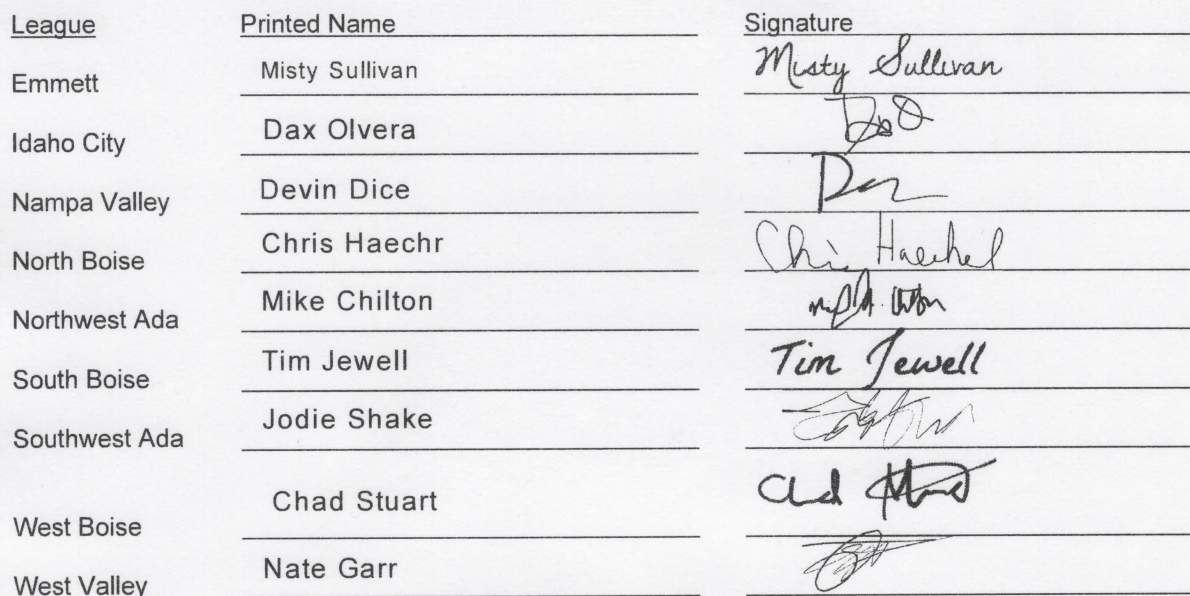 League Printed Name Signature
Emmett Misty Sullivan Misty Sullivan
Idaho City Dax Olvera
Nampa Valley Devin Dice
North Boise Chris Haechr Chris Haechel
Northwest Ada Mike Chilton
South Boise Tim Jewell Tim Jewell
Southwest Ada Jodie Shake
West Boise Chad Stuart Chad
West Valley Nate Garr